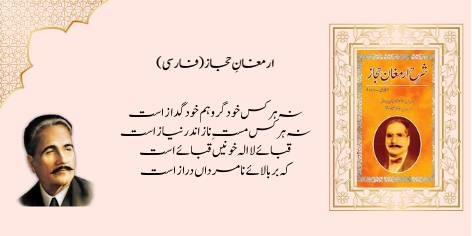 ارمغانِ حجاز (فارسی)
نہ ہر کس خود گرد و ہم خود گداز است
نہ ہر کس مست ناز اندر نیاز است
قبائے لا الہ خونیں قبائے است
کہ بر بالائے نامرداں دراز است
شرح ارمغان حجاز